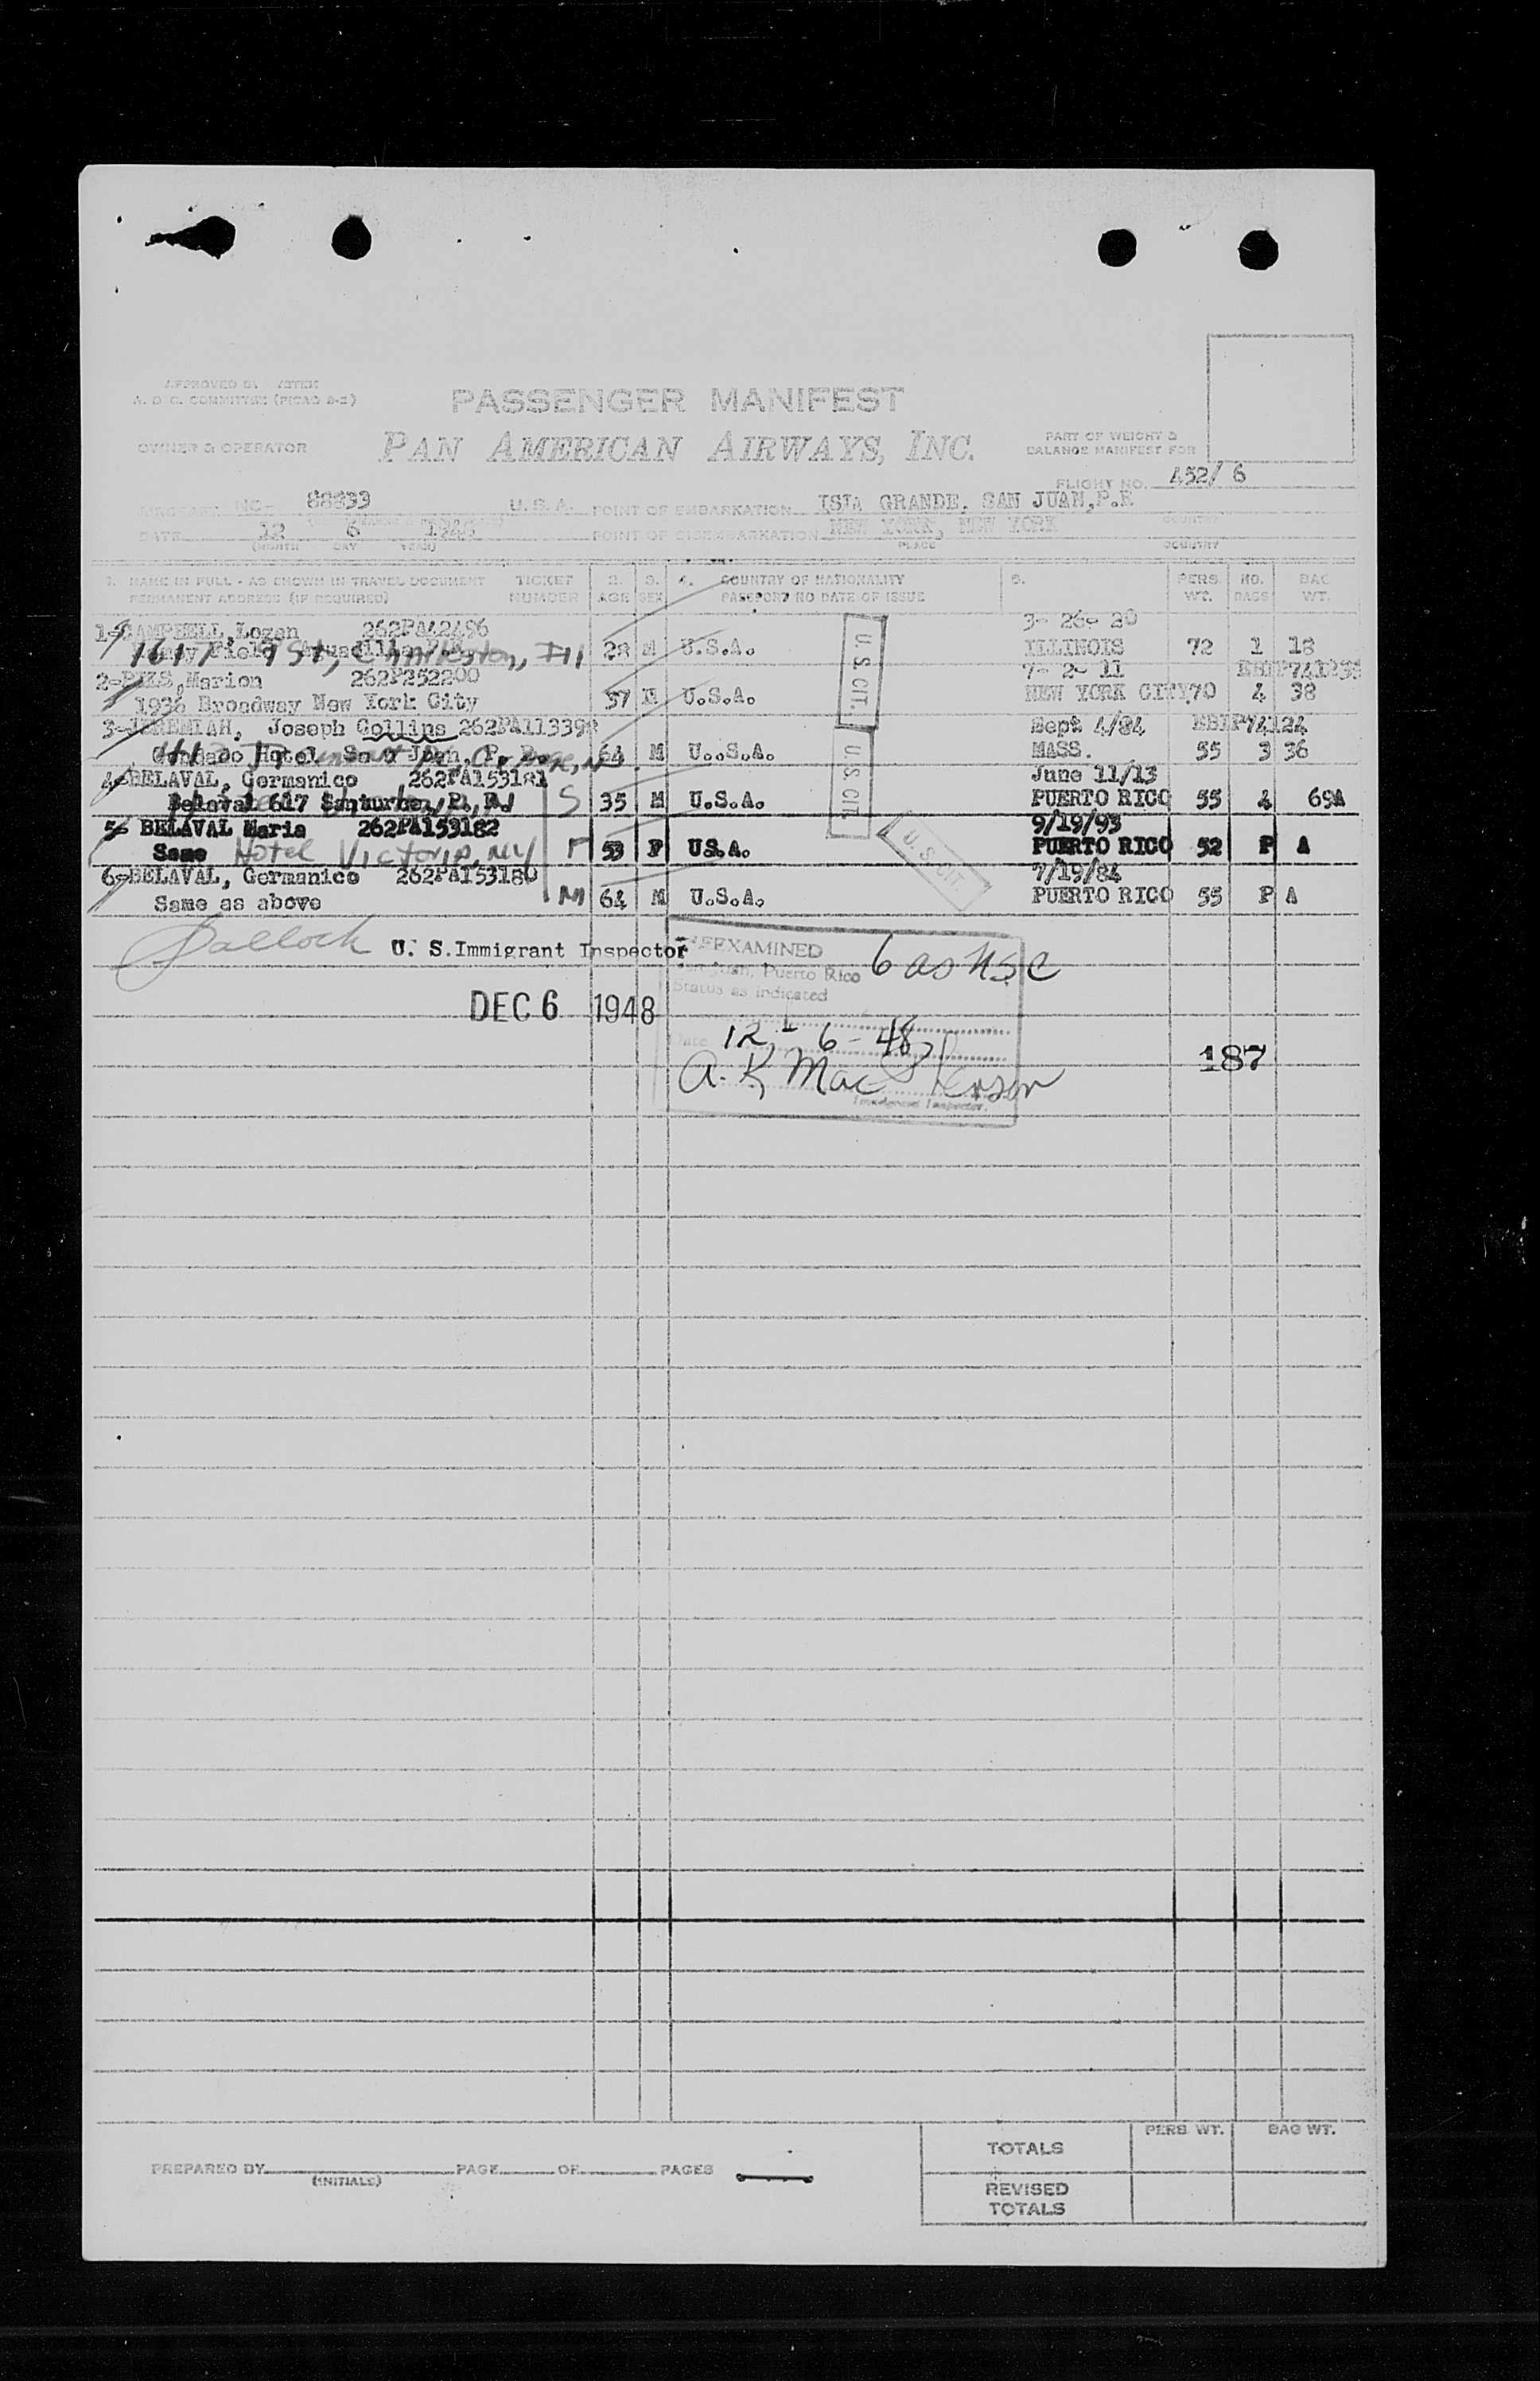 PASSENGER MANIFEST
A. D C. COMMITTEE (PICAO 2-2)
OWNER & OPERATOR
PAN AMERICAN AIRWAYS, INC.
PART OF WEIGHT &
BALANCE MANIFEST FOR
FLIGHT NO. 452/ 6
AIRCRAFT NO. 88833 U. S. A. POINT OF EMBARKATION ISLA GRANDE, SAN JUAN, P.R
COUNTRY
DATE 12 6 1948 POINT OF DISEMBARKATION NEW YORK, NEW YORK
(MONTH DAY YEAR) PLACE COUNTRY
1. NAME IN FULL - AS SHOWN IN TRAVEL DOCUMENT TICKET 2. 3. 4. COUNTRY OF NATIONALITY 5. PERS. NO. BAG
PERMANENT ADDRESS (IF REQUIRED) NUMBER AGE SEX PASSPORT NO DATE OF ISSUE WT. BAGS WT.
1-CAMPBELL, Logan 262PA42496 3- 26- 20
1617 9 St, Charleston, Ill 28 M U.S.A. ILLINOIS 72 1 18
2- Marion 262P252200 7- 2- 11
1936 Broadway New York City 37 U.S.A. NEW YORK CITY 70 4 38
3-JEREMIAH, Joseph Collins 262PA113398 Sept 4/84 EBIP74124
Hotel 64 M U..S.A. MASS. 55 3 36
4-BELAVAL, Germanico 262PA153181 June 11/13
Belaval 617 Santurce, P. R. S 35 M U.S.A. PUERTO RICO 55 4 69A
5- BELAVAL Maria 262PA153182 9/19/93
Same Hotel Victoria, NY F 53 F US.A. PUERTO RICO 52 P A
6-BELAVAL, Germanico 262PA153180 7/19/84
Same as above M 64 M U.S.A. PUERTO RICO 55 P A
U. S. CIT.
U. S. CIT.
U. S. CIT.
U. S. Immigrant Inspector
PREEXAMINED 6 as USC
San Juan, Puerto Rico
Status as indicated
DEC 6 1948
Date 12 - 6 - 48
187
A. R. MacPherson
Immigrant Inspector.
PERS WT. BAG WT.
TOTALS
PREPARED BY PAGE OF PAGES
(INITIALS)
REVISED
TOTALS